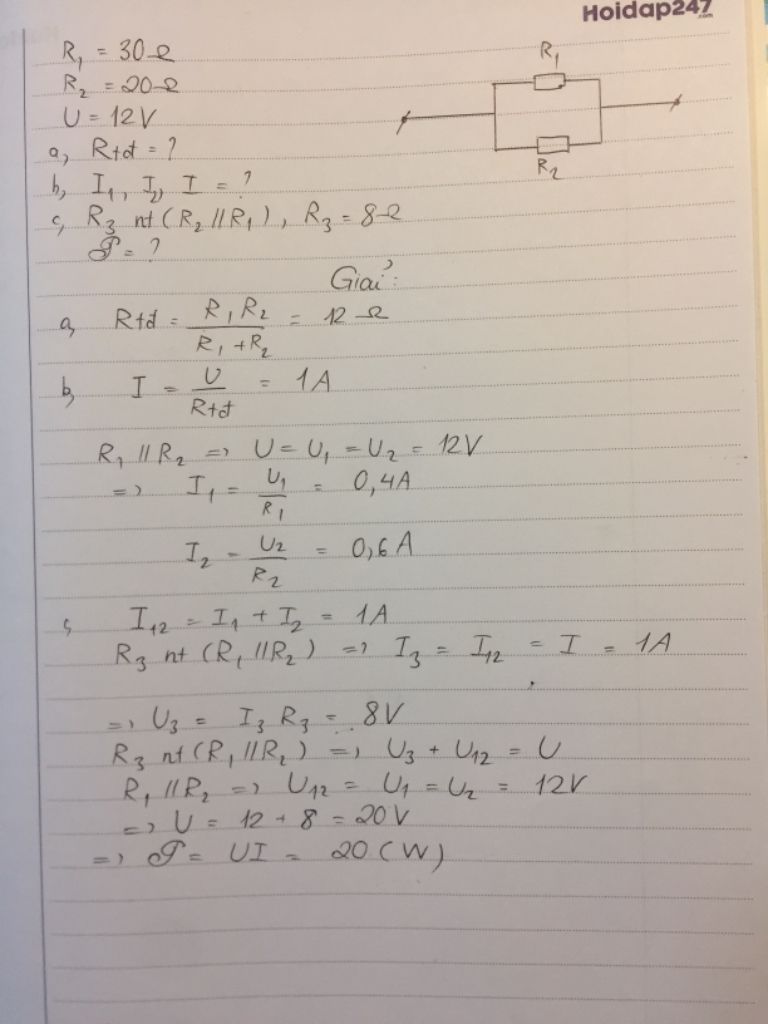 Hoidap247
.com
R₁ = 30Ω
R₂ = 20Ω
U = 12V
a, Rtđ = ?
b, I₁, I₂, I = ?
c, R₃ nt (R₂ // R₁), R₃ = 8Ω
𝒫 = ?
R₁
R₂
Giải:
a, Rtđ = R₁R₂ / R₁ + R₂ = 12 Ω
b, I = U / Rtđ = 1A
R₁ // R₂ => U = U₁ = U₂ = 12V
=> I₁ = U₁ / R₁ = 0,4A
I₂ = U₂ / R₂ = 0,6A
c, I₁₂ = I₁ + I₂ = 1A
R₃ nt (R₁ // R₂) => I₃ = I₁₂ = I = 1A
=> U₃ = I₃ R₃ = 8V
R₃ nt (R₁ // R₂) => U₃ + U₁₂ = U
R₁ // R₂ => U₁₂ = U₁ = U₂ = 12V
=> U = 12 + 8 = 20V
=> 𝒫 = UI = 20 (W)